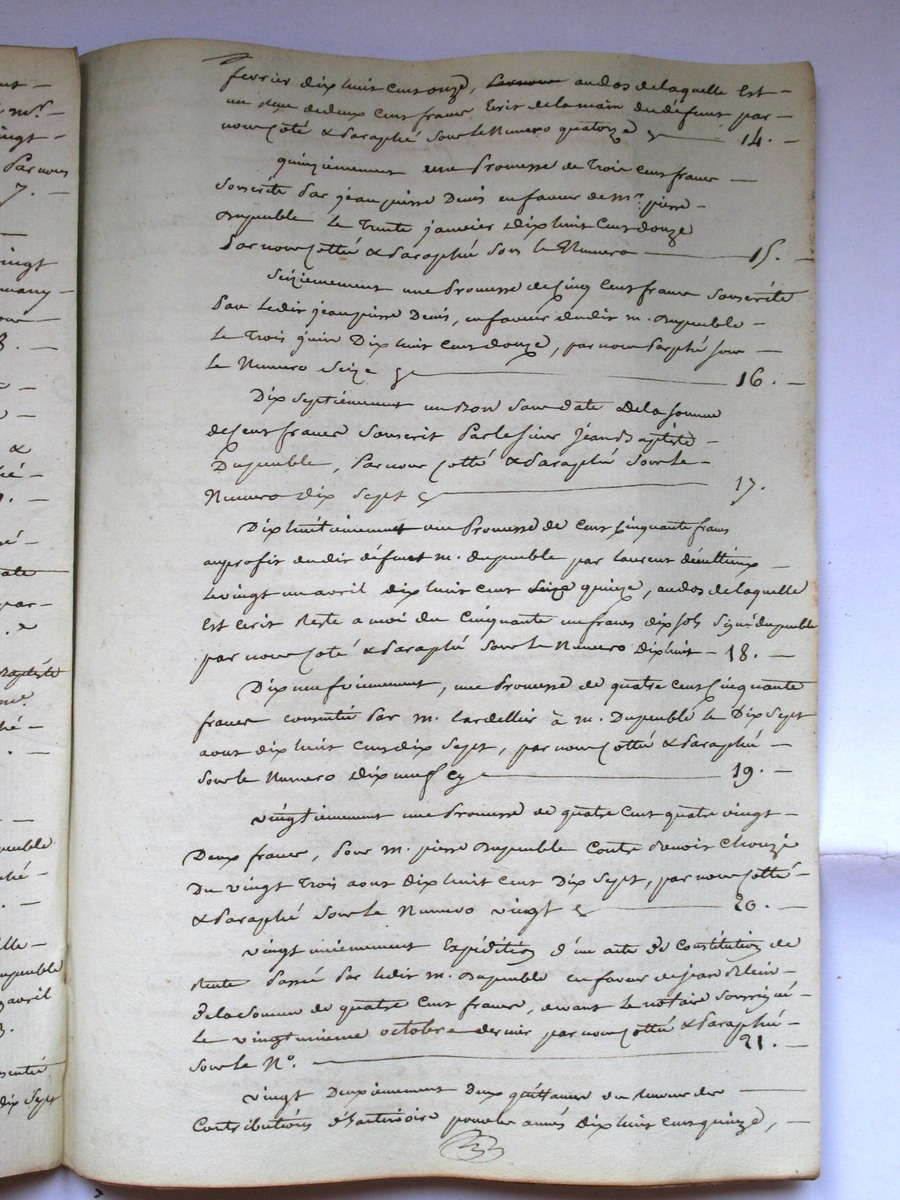 nt —
mrs. —
vingt —
Par nous
7. —
vingt
many —
3. —
&
hé —
sé —
par —
Baptiste
hé —
peuble
hé —
lle —
Dupeuble
avril
3.
sentie
dix Sept
fevrier dix huit cent onze, au dos de laquelle Est —
un reçu de deux cent francs Ecrit de la main du défunt par —
nous coté & Paraphé Sous le Numero quatorze — 14. —
quinziemement une Promesse de Trois Cent francs —
Souscrite Par jean pierre Denis en faveur de mr. pierre —
Dupeuble le Trente janvier dix huit Cent douze
Par nous Cotté & Paraphé Sous le Numero — 15. —
Seiziemement une Promesse de Cinq Cent francs Souscrite
Par ledit jean pierre Denis, en faveur dudit m. Dupeuble —
Le Trois juin Dix huit Cent douze, par nous Parphé sous —
le Numero Seize — 16. —
Dix Septiemement un Bon Sans date de la somme
de Cent francs Souscrit Par le Sieur Jean Baptiste —
Dupeuble, Par nous Cotté & Paraphé Sous le —
Numero dix Sept — 17.
Dix huitiemement une Promesse de Cent Cinquante francs
au profit dudit défunt m. dupeuble par Laurent —
le vingt un avril dix huit cent quinze, au dos de laquelle
Est Ecrit Reste a moi du Cinquante un francs dix sols Signé dupeuble
par nous Coté & Paraphé Sous le Numero dix huit — 18. —
Dix neuviemement, une Promesse de quatre Cent Cinquante
francs consentie Par m. Lardellier à m. Dupeuble le Dix Sept
aout dix huit Cent dix Sept, par nous Cotté & Paraphé —
Sous le Numero dix neuf — 19. —
vingtiemement une Promesse de quatre Cent quatre vingt —
Deux francs, Pour m. pierre Dupeuble Contre Benoit Chouzé
Du vingt Trois aout dix huit Cent Dix Sept, par nous Cotté —
& Paraphé Sous le Numero vingt — 20. —
vingt uniemement Expédition d'un acte de Constitution de
Rente Passé Par ledit m. Dupeuble en faveur de jean —
de la Somme de quatre Cent francs, devant le notaire Soussigné —
le vingt unieme octobre dernier par nous Cotté & Paraphé —
Sous le No. — 21. —
vingt Deuxiemement Deux quittances du des —
Contributions pour les années dix huit Cent quinze, —